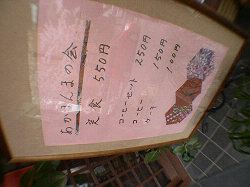 あかまんまの会
定食 550円
コーヒーセット 250円
コーヒー 150円
ケーキ 100円